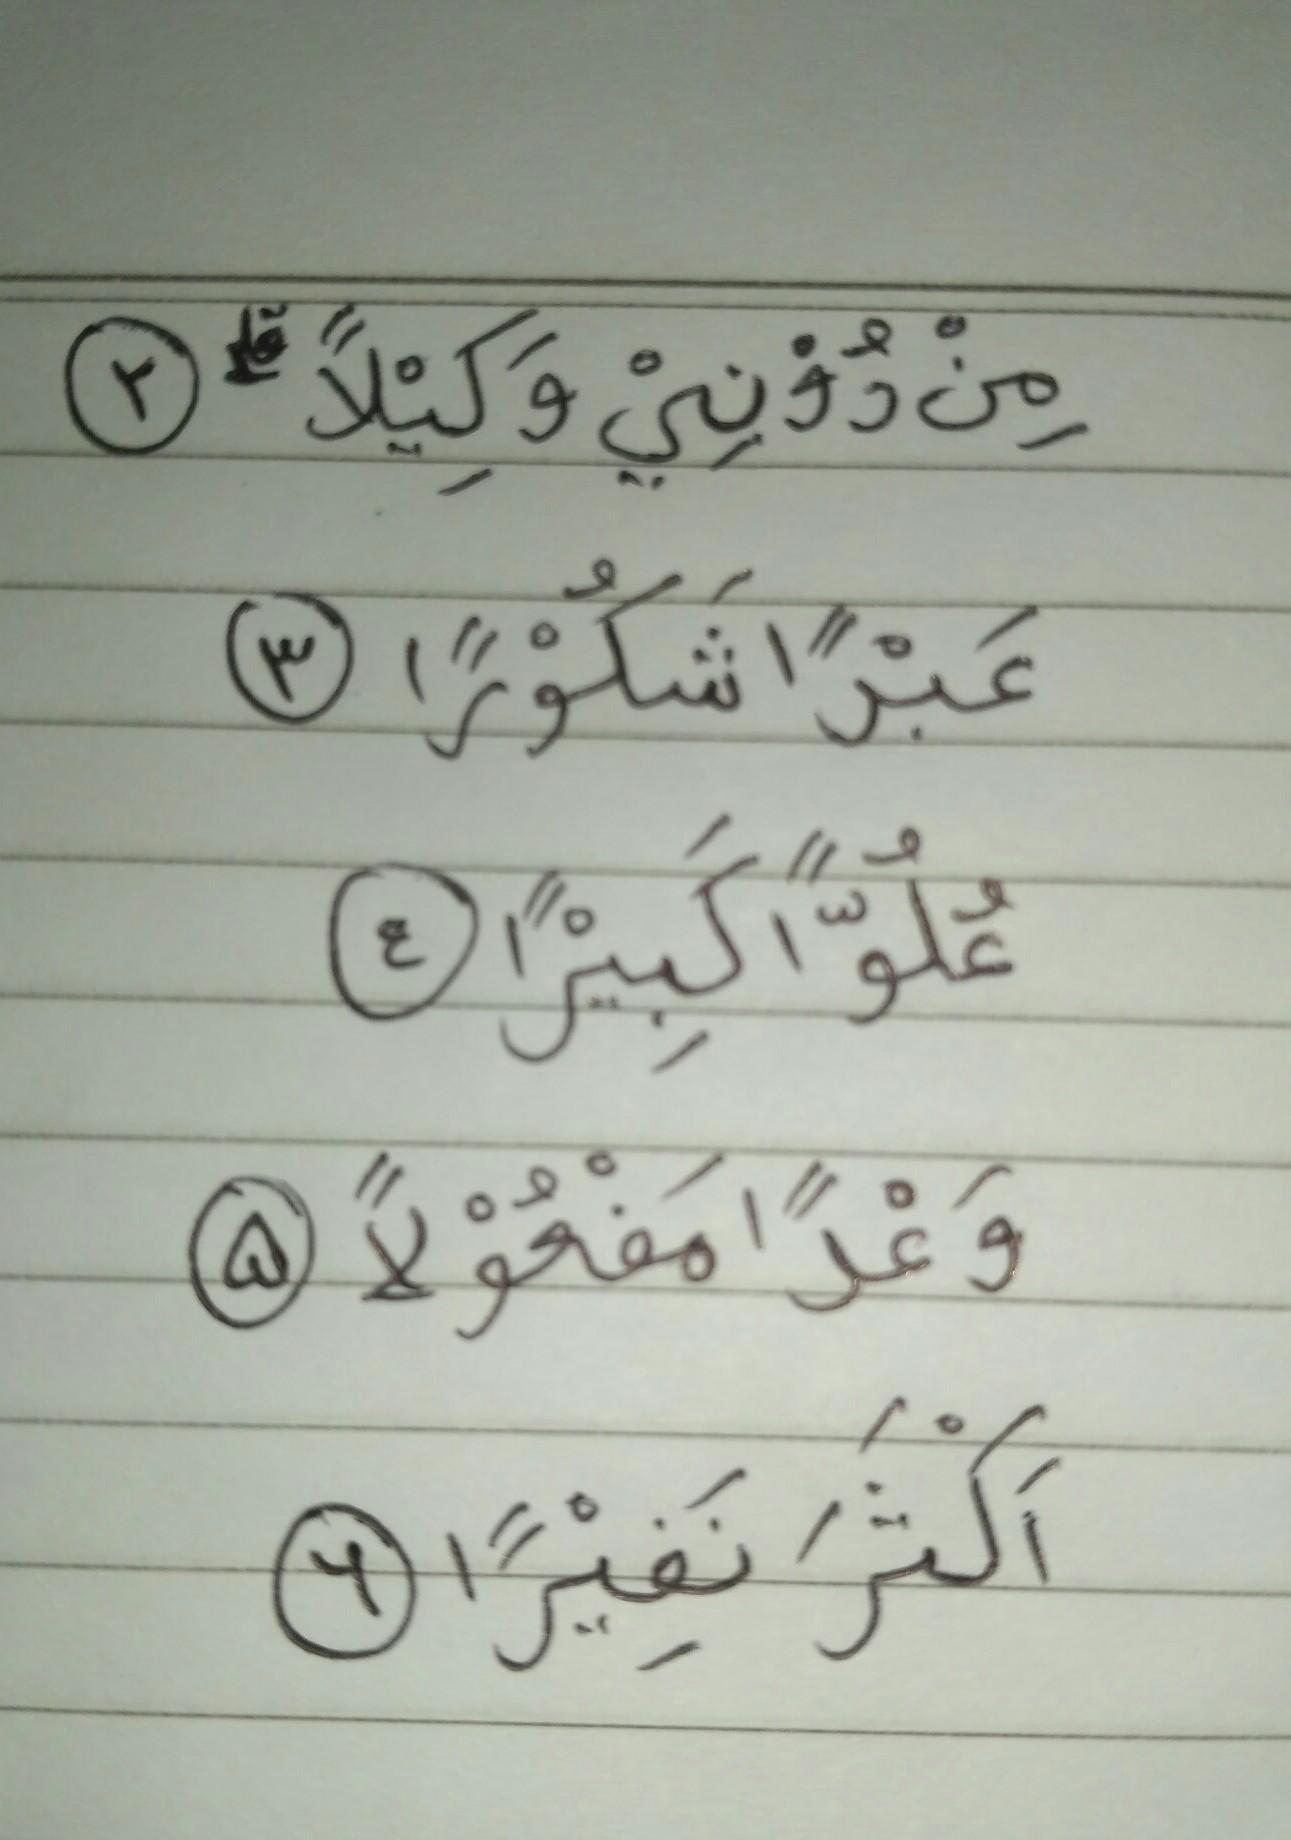 مِنْ دُوْنِيْ وَكِيْلاً ۲
عَبْدًا شَكُوْرًا ۳
عُلُوًّا كَبِيْرًا ٤
وَعْدًا مَفْعُوْلاً ۵
اَكْثَرَ نَفِيْرًا ۶